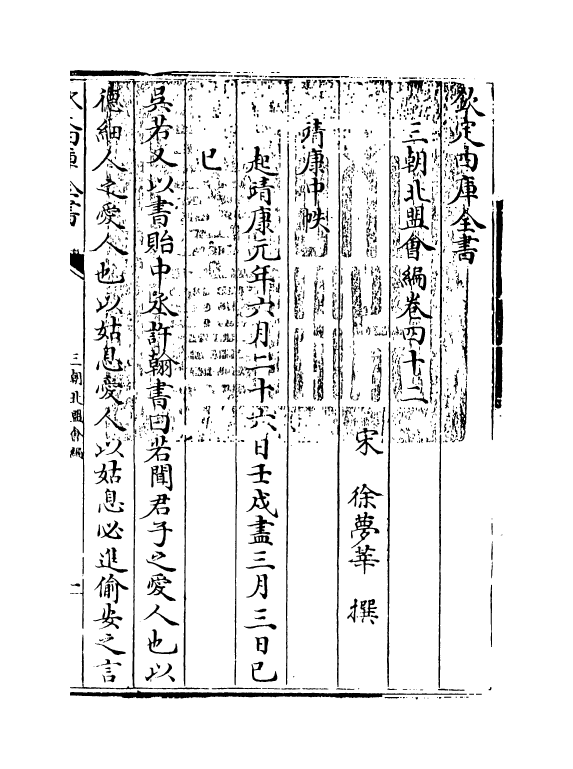 欽定四庫全書
三朝北盟㑹編卷四十二
宋 徐夢莘 撰
靖康中帙
起靖康元年六月二十六日壬戌盡三月三日已
已
吳若又以書貽中丞許翰書曰若聞君子之愛人也以
徳細人之愛人也以姑息愛人以姑息必進偷安之言
三朝北盟㑹編